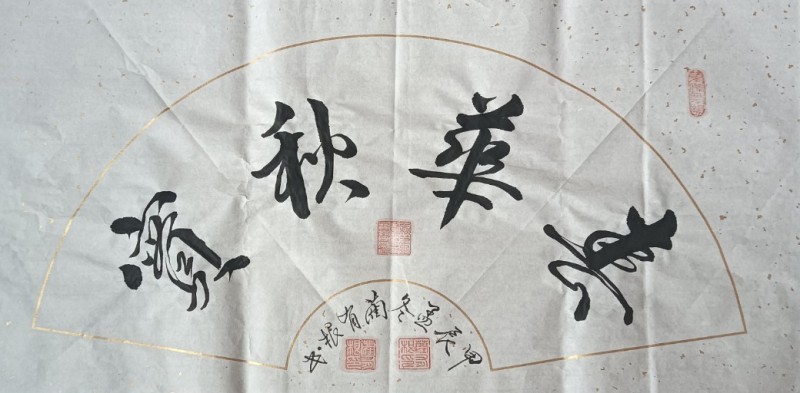 春華秋實
甲辰孟冬蘭有根书